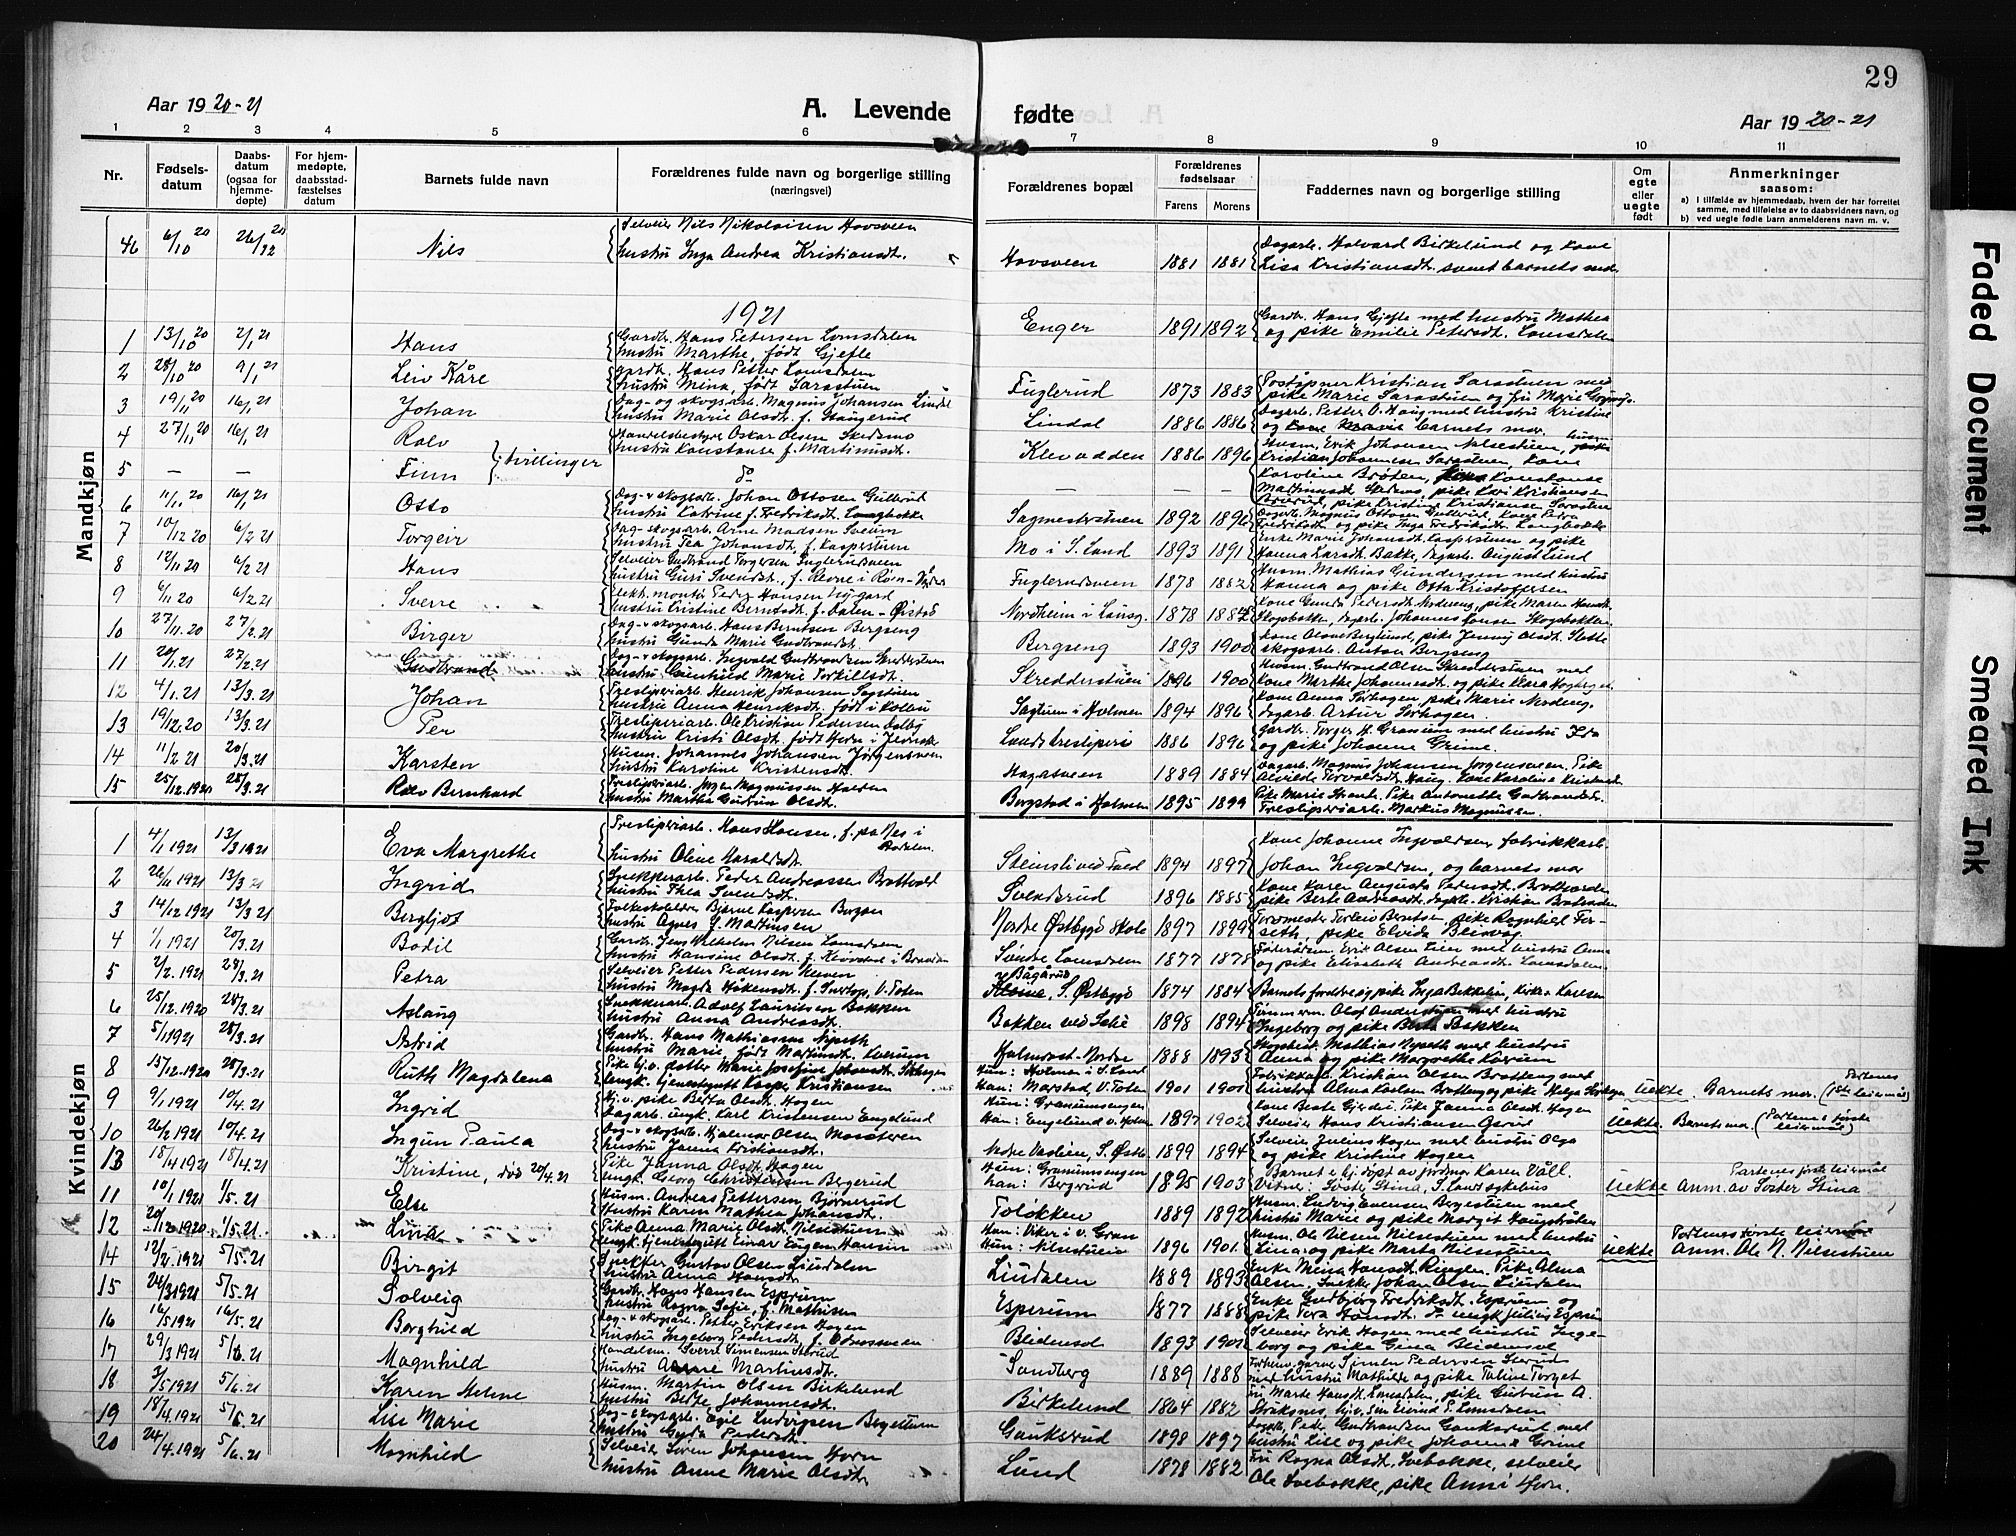 29
Aar 1920-21
A. Levende fødte
Aar 1920-21
1 2 3 4 5 6 7 8 9 10 11
Nr.
Fødselsdatum
Daabsdatum (ogsaa for hjemmedøpte)
For hjemmedøpte, daabsstadfæstelses datum
Barnets fulde navn
Forældrenes fulde navn og borgerlige stilling (næringsvei)
Forældrenes bopæl
Forældrenes fødselsaar
Farens Morens
Faddernes navn og borgerlige stilling
Om egte eller uegte født
Anmerkninger
saasom:
a) I tilfælde av hjemmedaab, hvem der har forrettet samme, med tilføielse av to daabsvidners navn, og
b) ved uegte fødte barn anmelderens navn m. v.
Mandkjøn
46 6/10 20 26/12 20 Nils Selveier Nils Nikolaisen Hovsveen Hovsveen 1881 1881 Dagarb. Halvard Birkelund og kone
hustru Inga Andrea Kristiansdt. Lisa Kristiansdt. samt barnets mor
1921
1 13/10 20 2/1 21 Hans Gardbr. Hans Petersen Lomsdalen Enger 1891 1892 Gardbr. Hans Gjefle med hustru Mathea
hustru Marthe, født Gjefle og pike Emilie Petersdt. Lomsdalen
2 28/10 20 9/1 21 Leiv Kåre gardbr. Hans Petter Lomsdalen Fuglerud 1873 1883 Poståpner Kristian Sarastuen med
hustru Mina, født Sarastuen pike Marie Sarastuen og fru Marie
3 19/11 20 16/1 21 Johan Dag- og skogsarb. Magnus Johansen Lindal Lindal 1886 1886 Dagarb. Petter O. Haug med hustru Kristine
hustru Marie Olsdt. f. Haugerud og barnets mor
4 27/11 20 16/1 21 Rolv Handelsbestyrer Oskar Olsen Skedsmo Klevadden 1886 1896 Husm. Erik Johansen Nilsestuen,
hustru Konstanse f. Martinusdt. Kristian Johannesen Sarastuen, kone
5 — — Finn } tvillinger do — — — Karoline Brøten, Konstanse
6 11/11 20 16/1 21 Otto Dag- & skogsarb. Johan Ottosen Gullerud Sagmesterstuen 1892 1896 Dagarb. Magnus Ottosen Gullerud, kone Petra
hustru Katrine f. Fredriksdt. Langbakke Fredriksdt. og pike Inga Fredriksdt. Langbakke
7 10/12 20 6/2 21 Torgeir Dag- skogsarb. Arne Madsen Sveum Mo i S. Land 1893 1891 Enke Marie Johansdt. Kasperstuen og pike
hustru Tea Johansdt. f. Kasperstuen Hanna Larsdt. Bakke, dagarb. August Lund
8 12/11 20 6/2 21 Hans Selveier Gudbrand Torgersen Fuglerudsveen Fuglerudsveen 1878 1882 Husm. Mathias Gundersen med hustru
hustru Guri Svendsdt. Hanna og pike Otta Kristoffersen
9 6/11 20 6/2 21 Sverre Elektr. montør Peder Hansen Nygard Nordheim i Landsg. 1878 1884 Kone Gunda Pedersdt. Modereng, pike Maren Hansdt.
hustru Kristine Berntsdt. f. Dalen - Øistad Skogsbakken, dagarb. Johannes Hansen Skogsbakken
10 27/11 20 27/2 21 Birger Dag- & skogsarb. Hans Berntsen Bergseng Bergseng 1893 1900 Kone Olave Berglund, pike Jenny Olsdt. Slette
hustru Gunda Marie Gudbrandsdt. skogsarb. Anton Bergseng
11 20/1 21 27/2 21 Gudbrand Dag- & skogsarb. Ingvald Gudbrandsen Skredderstuen Skredderstuen 1896 1900 Husm. Gudbrand Olsen Skredderstuen med
hustru Gunhild Marie Torkilsdt. kone Marthe Johannesdt. og pike Klara
12 4/1 21 13/3 21 Johan Tresliperiarb. Henrik Johansen Sagstuen Sagtuen i Holmen 1894 1896 Kone Anna Sørhagen, pike Marie Modeng,
hustru Anna Henriksdt. født i Kolbu dagarb. Artur Sørhagen
13 19/12 20 13/3 21 Per Tresliperiarb. Ole Kristian Pedersen Dalby Lands tresliperi 1886 1896 Gardbr. Torger H. Granum med hustru Ida
hustru Kristi Olsdt. født og pike Johanne Grime
14 11/2 21 20/3 21 Karsten Husm. Johannes Johansen Jørgensveen Hagasveen 1889 1884 Dagarb. Magnus Johansen Jørgensveen. Pike
hustru Karoline Kristensdt. Alvilde Torvaldsdt. Haug. Kone Karoline Kristensdt.
15 25/12 1920 28/3 21 Rolv Bernhard Tresliperiarb. Jørgen Magnussen Halden Bergstad i Holmen 1895 1899 Pike Marie Strande. Pike Antonette Gudbrandsdt.
hustru Marthe Gudrun Olsdt. Tresliperiarb. Markus Magnussen
Kvindekjøn
1 4/1 1921 13/3 1921 Eva Margrethe Tresliperiarb. Hans Hansen, f. på Nes i Aadalen Steinsli ved Fald 1894 1897 Kone Johanne Ingvaldsen, fabrikkarb.
hustru Oline Haraldsdt. Johan Ingvaldsen, og barnets mor
2 26/11 1921 13/3 21 Ingrid Snekkerarb. Peder Andreassen Brattvold Svenderud 1896 1885 Kone Karen Augusta Pedersdt. Bratvorden
hustru Thea Svendsdt. pike Berte Andreasdt. dagarb. Kristian
3 14/12 1921 13/3 21 Bergljot Folkeskolelærer Bjarne Kaspersen Bergan Nordre Østbygd Skole 1897 1899 Tørvmester Torleiv Berntsen, pike Ragnhild
hustru Agnes f. Martinsen seth, pike Elvida
4 1/1 1921 20/3 21 Bodil Gardbr. Jens Wilhelm Nilsen Lomsdalen Søndre Lomsdalen 1877 1878 Føderådsm. Erik Olsen Lien med hustru Anna
hustru Hansine Olsdt. og pike Elisabeth Andreasdt. Lomsdalen
5 2/2 1921 28/3 21 Petra Selveier Petter Pedersen Bågårud S. Østbygd 1874 1884 Barnets foreldre og pike Inga Bekkelien, Kirkev. Karlsen
hustru Magda Håkensdt. V. Toten
6 25/12 1920 28/3 21 Aslaug Snekkerarb. Adolf Lauritsen Bakken Bakken ved Solie 1898 1894 Tømmerm. Olaf Anderstuen med hustru
hustru Anna Andreasdt. Ingeborg og pike Berta Bakken
7 5/1 1921 28/3 21 Astrid Gardbr. Hans Mathiassen Nyseth Holmdost Nordre 1888 1893 Skogsbest. Mathias Nyseth med hustru
hustru Marie, født Martinsdt. Kverum Anna og pike Margrethe Kverum
8 15/12 1920 28/3 21 Ruth Magdalena Pike hj.v. datter Marie Josefine Johansdt. Hun: Holmen i S. Land Fabrikkarb. Kristian Olsen Bratteng med
ungk. tjenestegutt Kasper Kristiansen Han: Marstad, V. Toten 1901 1901 hustru Alma Karlsen Bratteng og pike Helga uekte Barnets mor. (Partenes 1ste leiermål)
9 9/1 1921 10/4 21 Ingrid Hj.v. pike Berta Olsdt. Hagen Hun: Granumsengen Kone Beate Gjerdei. Pike Janna Olsdt. Hagen
Dagarb. ungk. Karl Kristensen Engelund Han: Engelund v. Holm. 1897 1902 Selveier Hans Kristiansen Gerud uekte. Barnets mor. (Partenes første leiermål)
10 26/2 1921 10/4 21 Ingun Paula Dag- & skogsarb. Hjalmar Olsen Mosateren Nedre Vaslien, S. Østb. 1899 1894 Selveier Julius Hagen med hustru Olga
hustru Janna Kristiansdt. og pike Kristine Hagen
13 18/4 1921 18/4 21 Kristine, død 20/4 21 Pike Janna Olsdt. Hagen Hun: Granumsengen Barnet e hj.døpt av jordmor Karen Våll.
ungk. Georg Christensen Bergerud Han: Bergerud 1895 1903 Vitner: Søster Stina, S. Lands sykehus uekte Partenes første leiermål Anm. av Søster Stina
11 10/1 1921 1/5 21 Else Husm. Andreas Pettersen Bjørnerud Toløkken 1889 1892 Husm. Ludvig Evensen Bergestuen med
Hustru Karen Mathea Johansdt. hustru Marie og pike Margit Haugstrålen
12 20/12 1920 1/5 21 Lina Pike Anna Marie Olsdt. Nilsestuen Han: Viker i v. Gran Husm. Ole Nilsen Nilsestuen med hustru
ungk. tjenestegutt Einar Eugen Hansen Hun: Nilsestuen 1896 1901 Lina og pike Marta Nilsestuen uekte Partenes første leiermål Anm. Ole N. Nilsestuen
14 12/2 1921 5/5 21 Birgit Snekker Gustav Olsen Lindalen Lindalen 1889 1893 Enke Mina Hansdt. Ringlen. Pike Alma
hustru Anna Hansdt. Olsen, Snekker Johan Olsen Lindalen
15 24/3 1921 5/5 21 Solveig Gardbr. Hans Hansen Esperum Esperum 1877 1888 Enke Gudbjørg Fredriksdt. Esprum og
hustru Ragna Sofie, f. Mathisen pike Tora Hansdt. & ungk. Julius Esprum
16 16/5 1921 16/5 21 Borghild Dag- & skogsarb. Petter Eriksen Hagen Blidensol 1893 1901 Selveier Erik Hagen med hustru Inge-
hustru Ingeborg Pedersdt. f. Odnesveen borg og pike Gina Blidensol
17 29/3 1921 5/6 21 Magnhild Handelsm. Sverre Simensen Sterud Sandberg 1889 1888 garver Simen Pedersen Sterud
hustru Anne Martinusdt. med hustru Mathilde og pike Taline Torget
18 3/5 1921 5/6 21 Karen Helene Husm. Martin Olsen Birkelund Birkelund 1864 1882 fru Marte Hansdt. Lomsdalen, pike Gudrun A.
hustru Berte Johannesdt. Straksnes, hj.v. søn Eivind P. Lomsdalen
19 18/4 1921 5/6 21 Lise Marie Dag- & skogsarb. Egil Ludvigsen Bergestuen Gauksrud 1898 1897 Dagarb. Peder Gudbrandsen Gauksrud med
hustru Gyda Pedersdt. hustru Lise og pike Johanne Grime
20 24/4 1921 5/6 21 Magnhild Selveier Søren Johansen Horn Lund 1878 1882 Fru Ragna Olsdt. Svebakke, selveier
hustru Anne Marie Olsdt. Ole Svebakke, pike Anna Horn.
Faded Document Smeared Ink